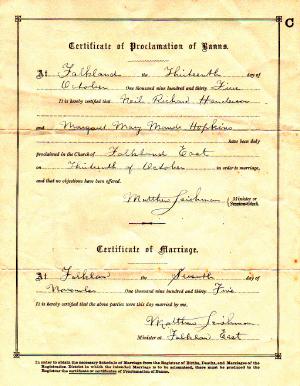 C
Certificate of Proclamation of Banns.
At Falkland the Thirteenth day of
October One thousand nine hundred and thirty Five
It is hereby certified that Neil Richard Henderson
and Margaret Mary Hopkins
have been duly
proclaimed in the Church of Falkland East
on Thirteenth of October in order to marriage,
and that no objections have been offered.
Matthew Leishman Minister or
Session-Clerk.
Certificate of Marriage.
At Falkland the day of
November One thousand nine hundred and thirty Five
It is hereby certified that the above parties were this day married by me.
Matthew Leishman
Minister at Falkland East
In order to obtain the necessary Schedule of Marriage from the Registrar of Births, Deaths, and Marriages of the
Registration District in which the intended Marriage is to be solemnized, there must be produced to
the Registrar the certificate or certificates of Proclamation of Banns.